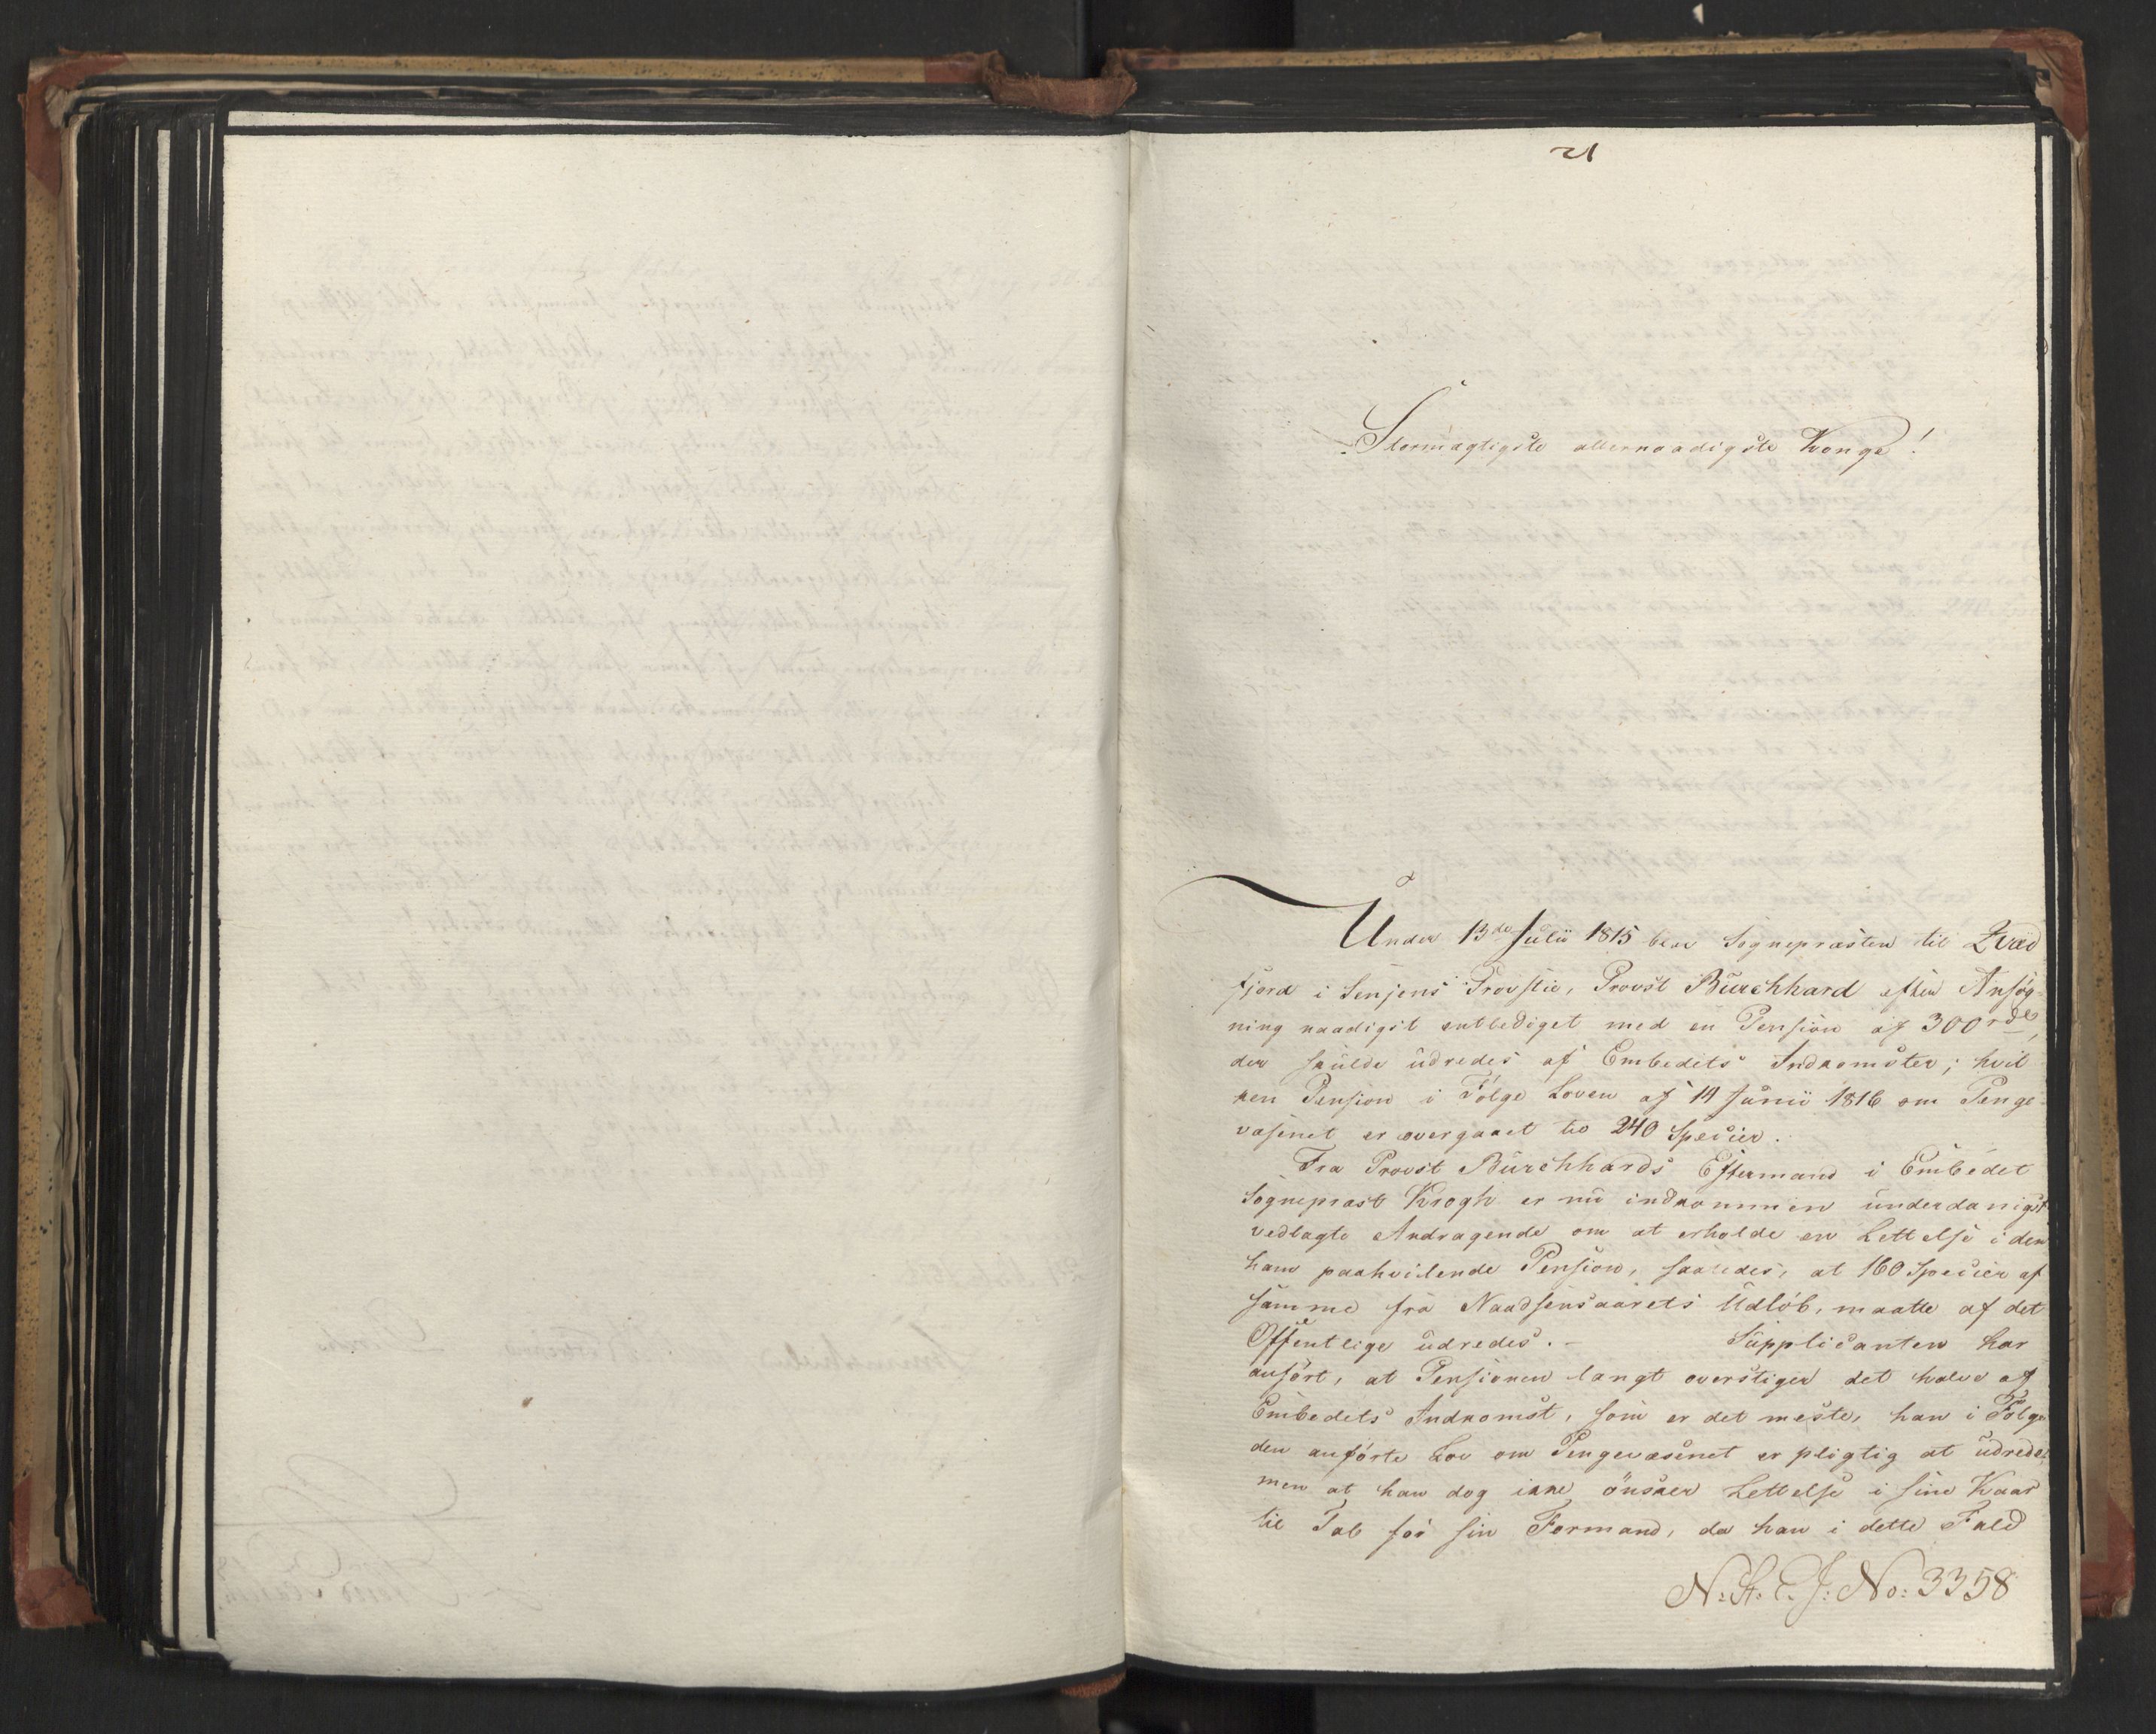 21
Stormægtigste allernaadigste Konge!
Under 13de Julii 1815 blev Sognepræsten til Qvæd
fjord i Senjens Provstie, Provst Burchhard efter Ansøg-
ning naadigst entlediget med en Pension af 300 rdl,
der skulde udredes af Embedets Indkomster; hvil
ken Pension i Følge Loven af 14 Junii 1816 om Penge-
væsenet er overgaaet til 240 Specier.
Fra Provst Burchhards Eftermand i Embedet
Sognepræst Krogh er nu indkommen underdanigst
vedlagte Andragende om at erholde en Lettelse i den
ham paahvilende Pension, saaledes, at 160 Specier af
samme fra Naadsensaarets Udløb, maatte af det
Offentlige udredes. - Supplicanten har
anført, at Pensionen langt overstiger det halve af
Embedets Indkomst, som er det meste, han i Følge
den anførte Lov om Pengevæsenet er pligtig at udrede,
men at han dog ikke ønsker Lettelse i sine Kaar
til Tab for sin Formand, da han i dette Fald
N: St: C. J: No: 3358